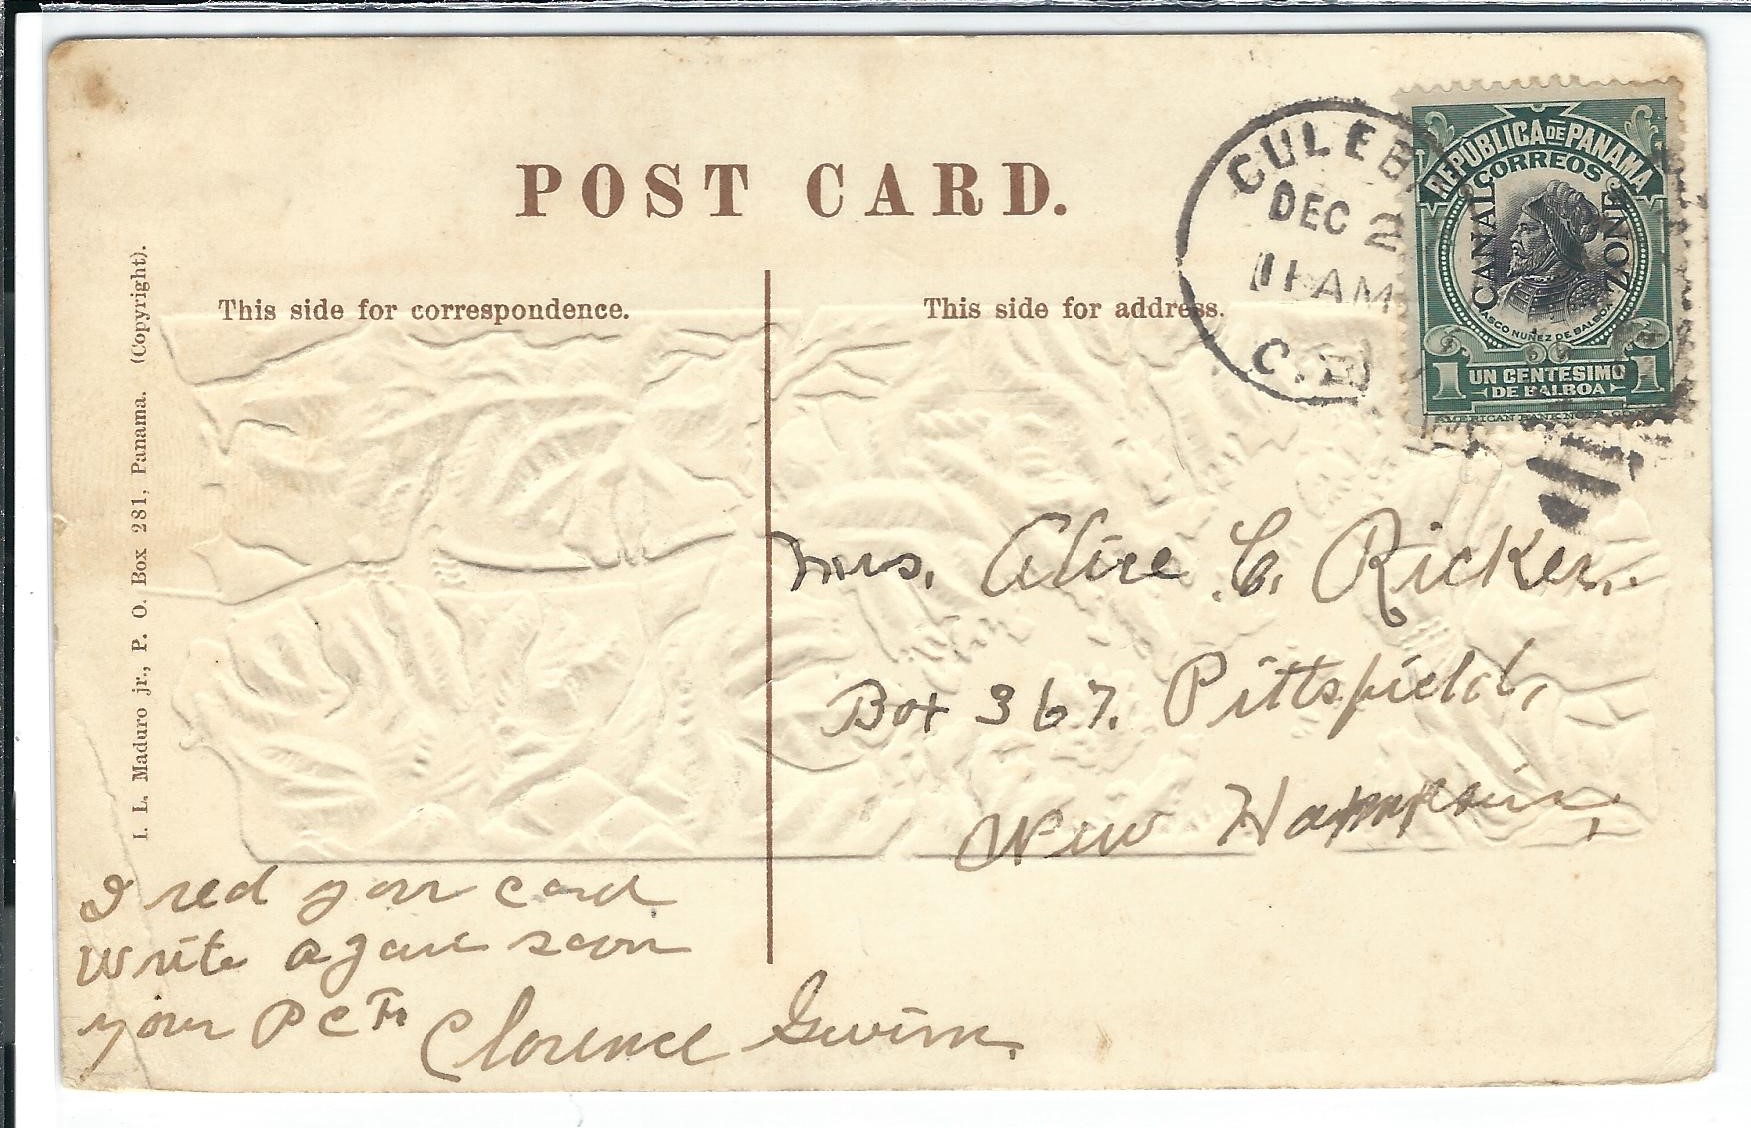 POST CARD.
This side for correspondence.
This side for address.
I. L. Maduro jr., P. O. Box 281, Panama. (Copyright).
CULEB
DEC 2
11 AM
C.Z.
REPUBLICA DE PANAMA
CORREOS
CANAL ZONE
VASCO NUÑEZ DE BALBOA
1 UN CENTESIMO 1
DE BALBOA
AMERICAN BANK NOTE CO
Mrs. Alice C. Ricker.
Box 367. Pittsfield,
New Hampshire,
I red your card
write agane soon
your P C Fr
Clorence Gwinn.